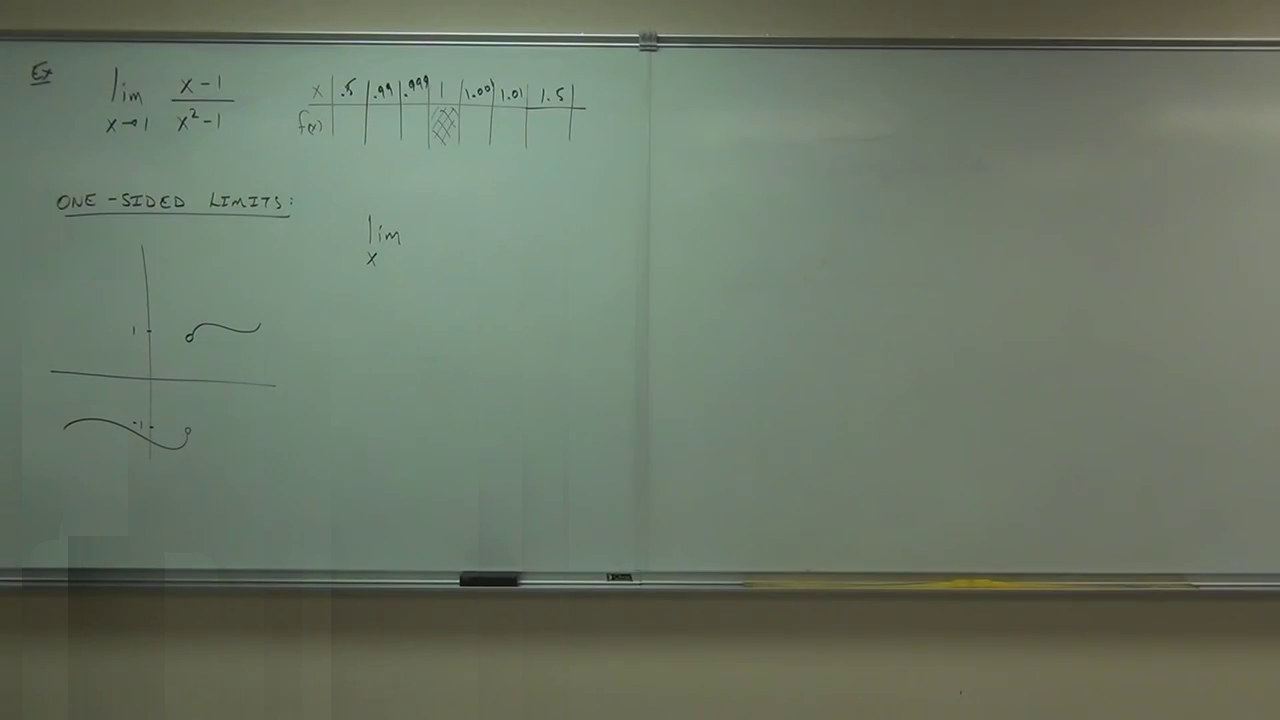 Ex
lim x→1 x-1 / x²-1
x .5 .99 .999 1 1.001 1.01 1.5
f(x)
ONE-SIDED LIMITS:
lim
x
1
-1